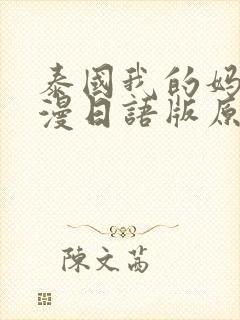 泰國我的妈
漫日語版原
陳文茜